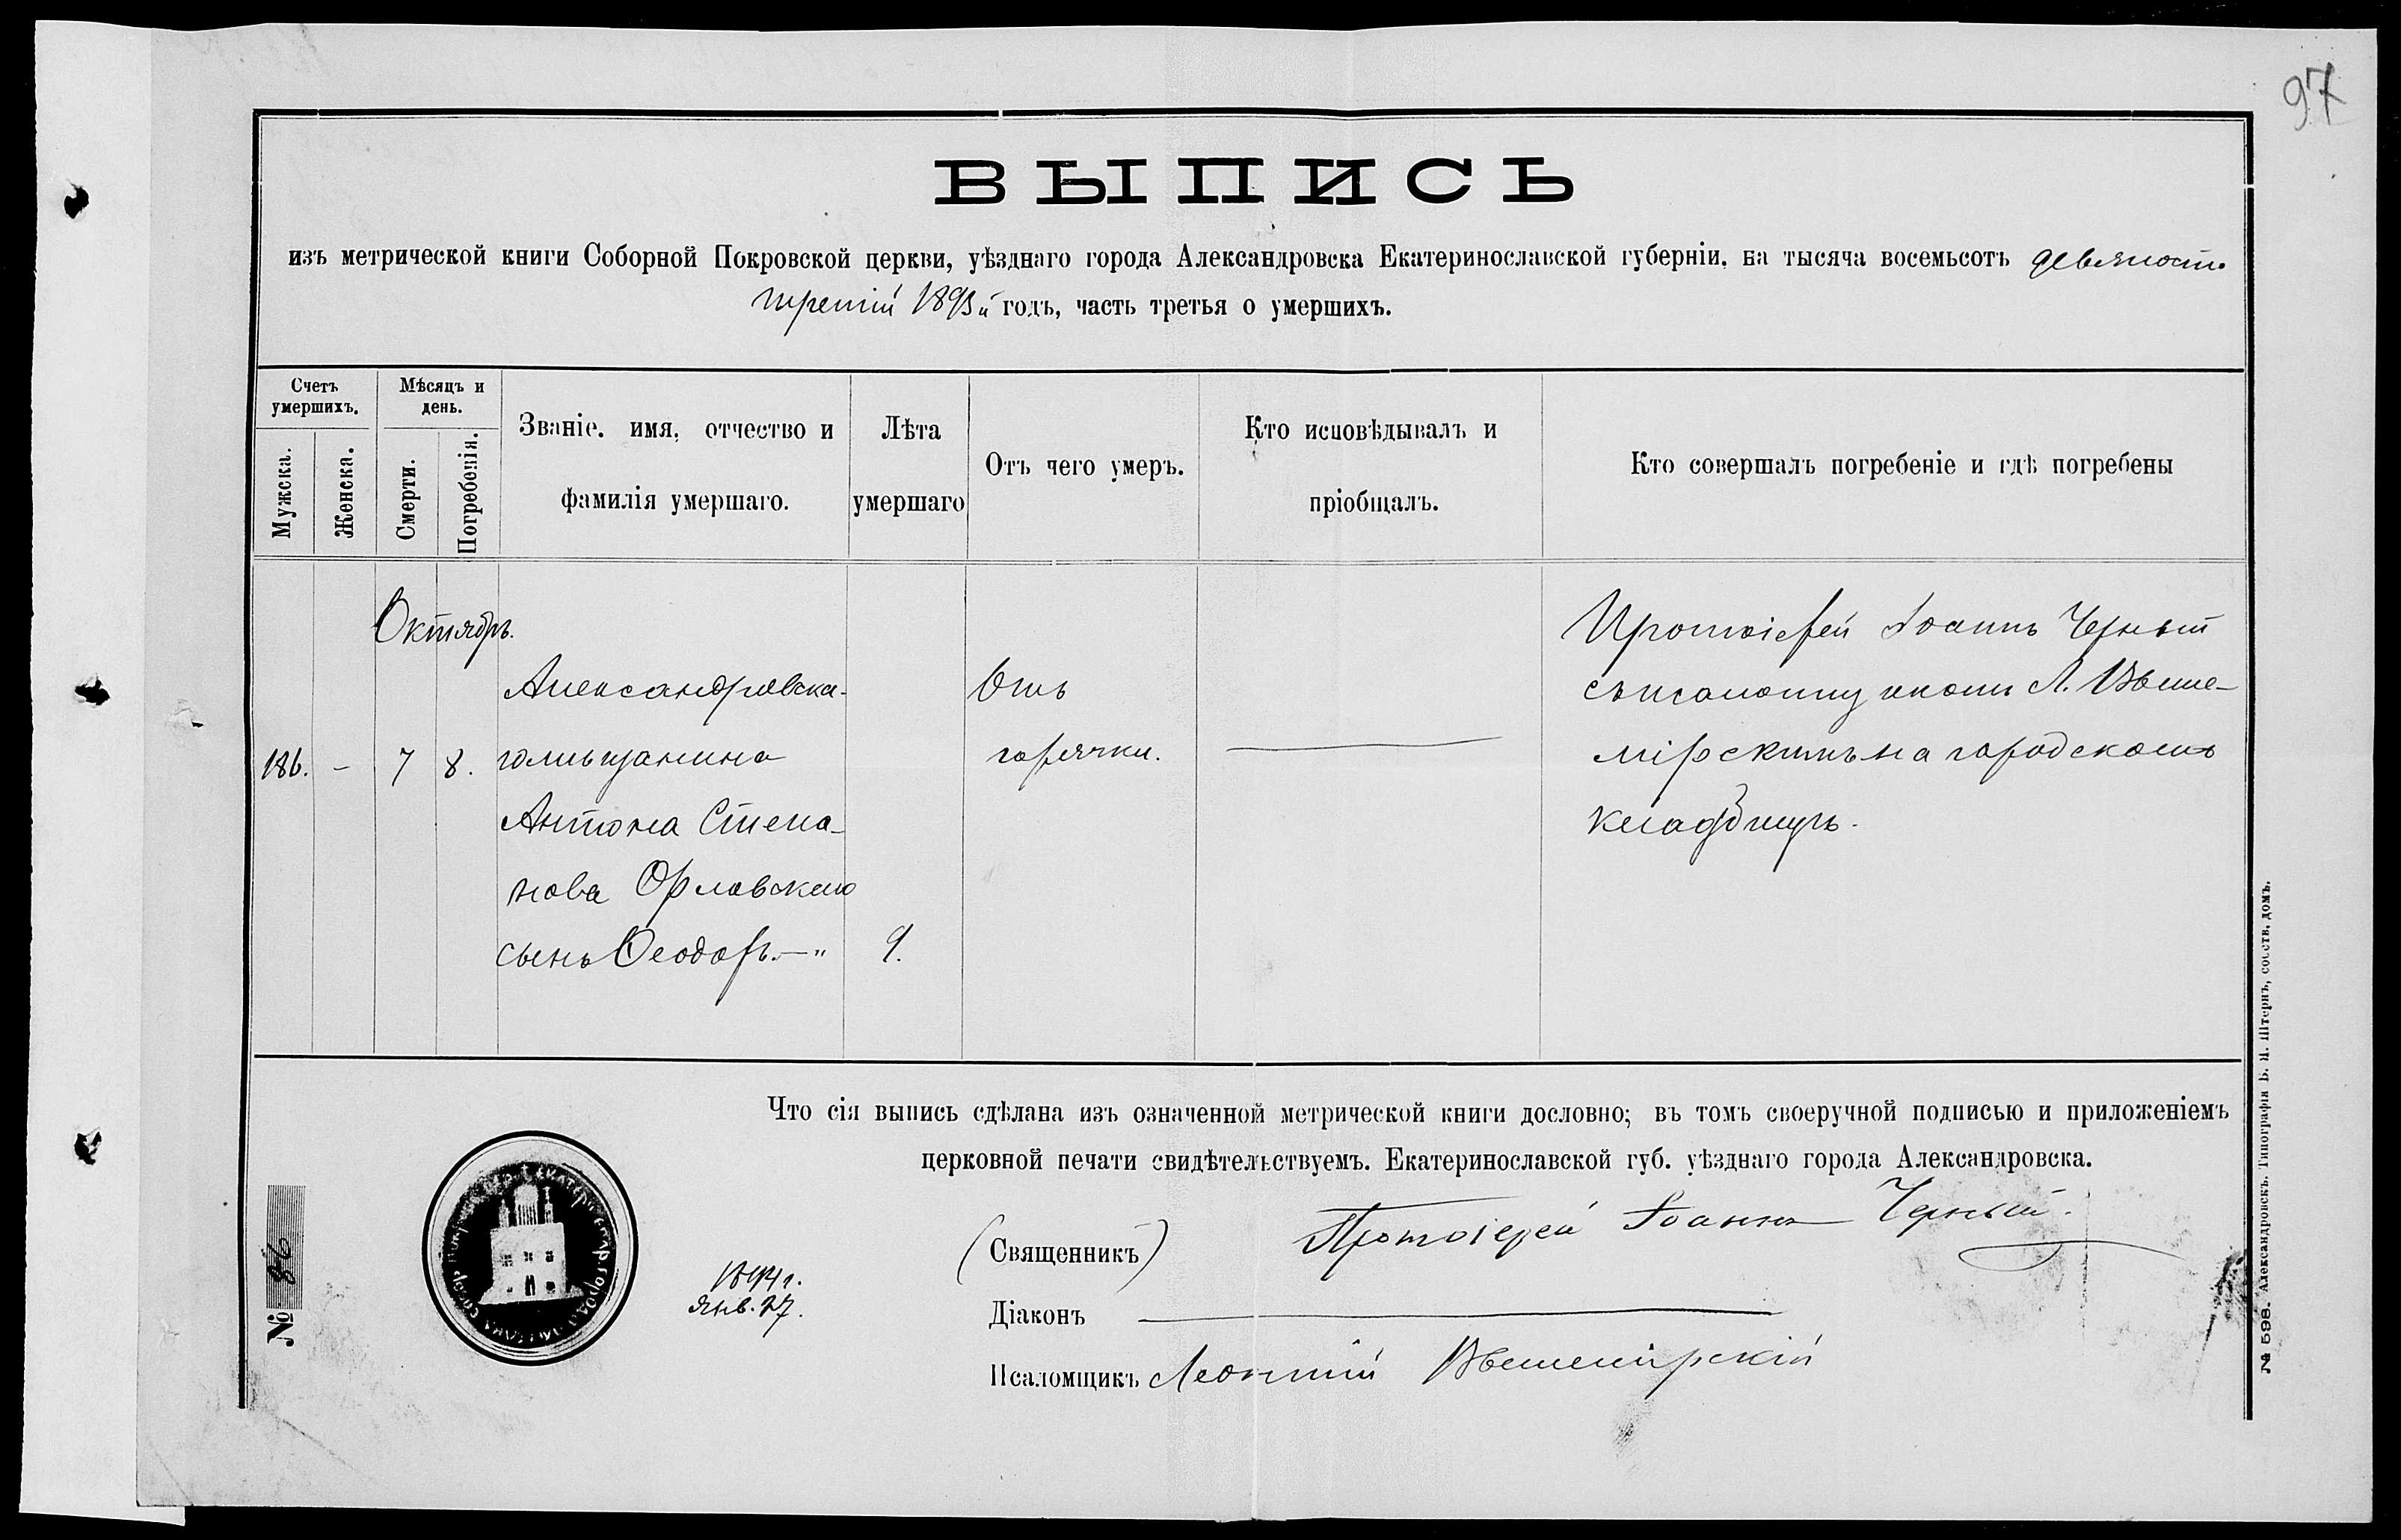 97
ВЫПИСЬ
изъ метрической книги Соборной Покровской церкви, уѣзднаго города Александровска Екатеринославской губерніи, на тысяча восемьсотъ девяносто
третій 1893й годъ, часть третья о умершихъ.
Счетъ умершихъ.
Мужска.
Женска.
Мѣсяцъ и день.
Смерти.
Погребенія.
Званіе, имя, отчество и
фамилія умершаго.
Лѣта
умершаго
Отъ чего умеръ.
Кто исповѣдывалъ и
пріобщалъ.
Кто совершалъ погребеніе и гдѣ погребены
Октябрь.
186. – 7 8.
Александровска-
го мѣщанина
Антона Степа-
нова Орловскаго
сынъ Ѳеодоръ.—"
9.
Отъ
горячки.
Протоіерей Іоаннъ Черный
съ псаломщикомъ Л. Выше-
мірскимъ на городскомъ
кладбищѣ.
Что сія выпись сдѣлана изъ означенной метрической книги дословно; въ томъ своеручной подписью и приложеніемъ
церковной печати свидѣтельствуемъ. Екатеринославской губ. уѣзднаго города Александровска.
(Священникъ) Протоіерей Іоаннъ Черный.
Діаконъ
Псаломщикъ Леонтій Вышемірскій
1894 г.
Янв. 27.
№ 86
№ 598. Александровскъ. Типографія Б. Я. Штернъ, собств. домъ.